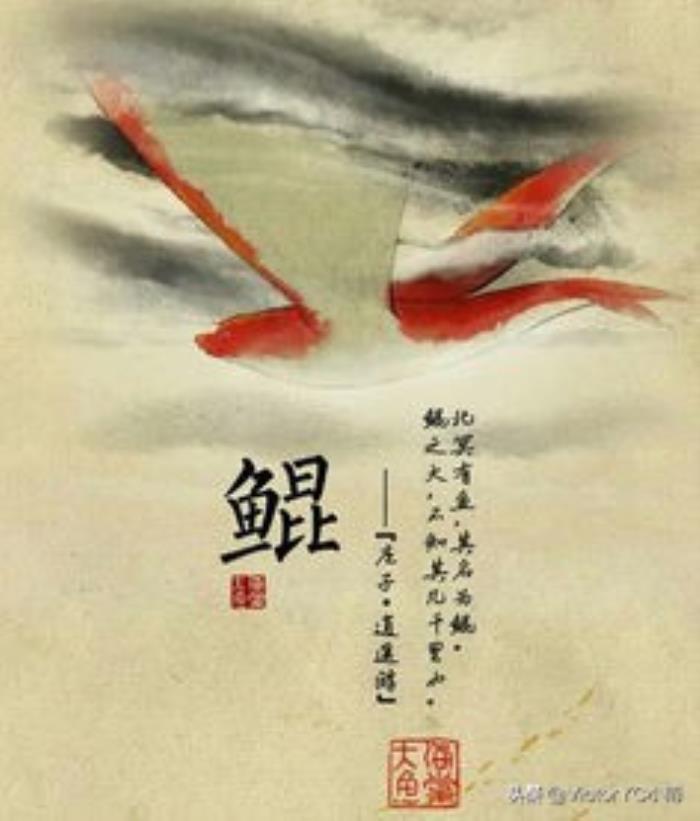 北冥有鱼,其名为鲲。
鲲之大,不知其几千里也。
——『庄子·逍遥游』
鲲
大鱼
海棠
头条 @Victor